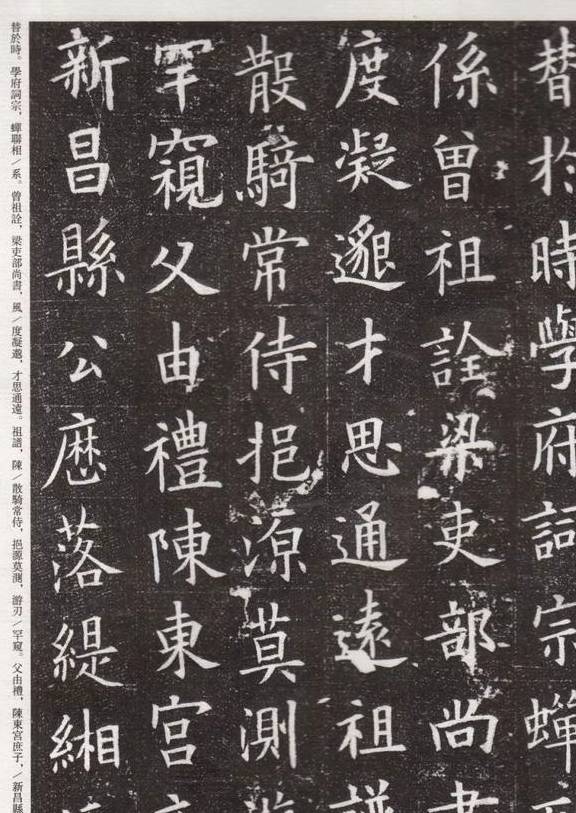 替於時學府詞宗蟬
係曾祖詮梁吏部尚書
度凝邈才思通遠祖譜
散騎常侍挹源莫測游
罕窺父由禮陳東宮
新昌縣公歷落緹緗
替於時。學府詞宗，蟬聯相／系。曾祖詮，梁吏部尚書，風／度凝邈，才思通遠。祖譜，陳／散騎常侍，挹源莫測，游刃／罕窺。父由禮，陳東宮庶子，／新昌縣